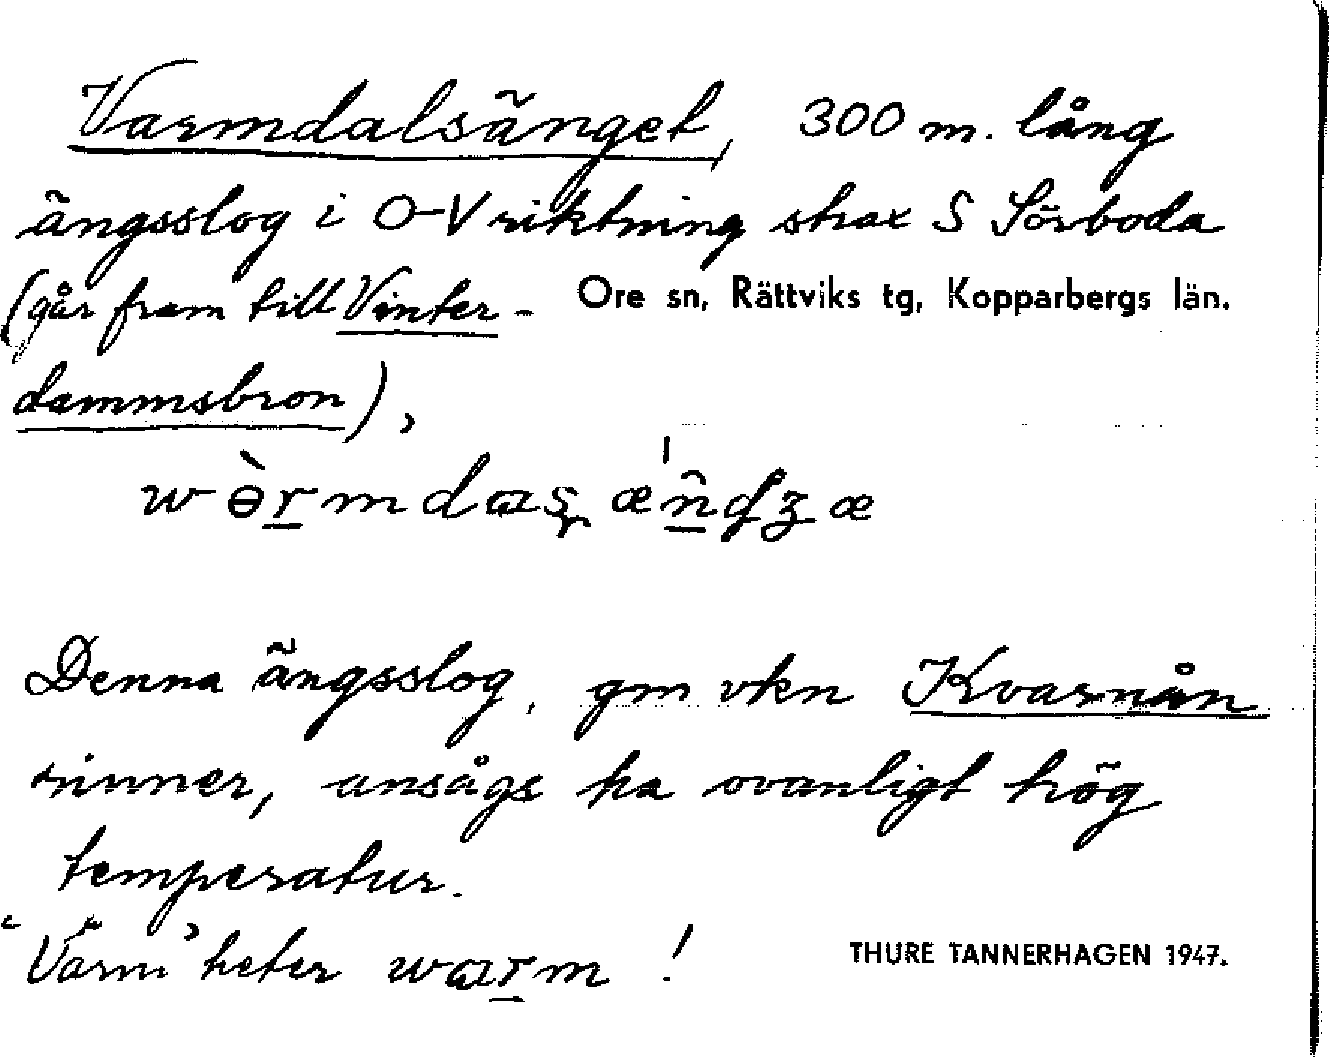 Varmdalsänget, 300 m. lång
ängsslog i O-V riktning strax S Sörboda
(går fram till Vinter-
Ore sn, Rättviks tg, Kopparbergs län.
dammsbron),
wɵ̀r̲mdɑʂ æˈn̲̂ʤæ
Denna ängsslog, gm vkn Kvarnån
rinner, ansågs ha ovanligt hög
temperatur.
"Varm" heter wɑr̲m !
THURE TANNERHAGEN 1947.